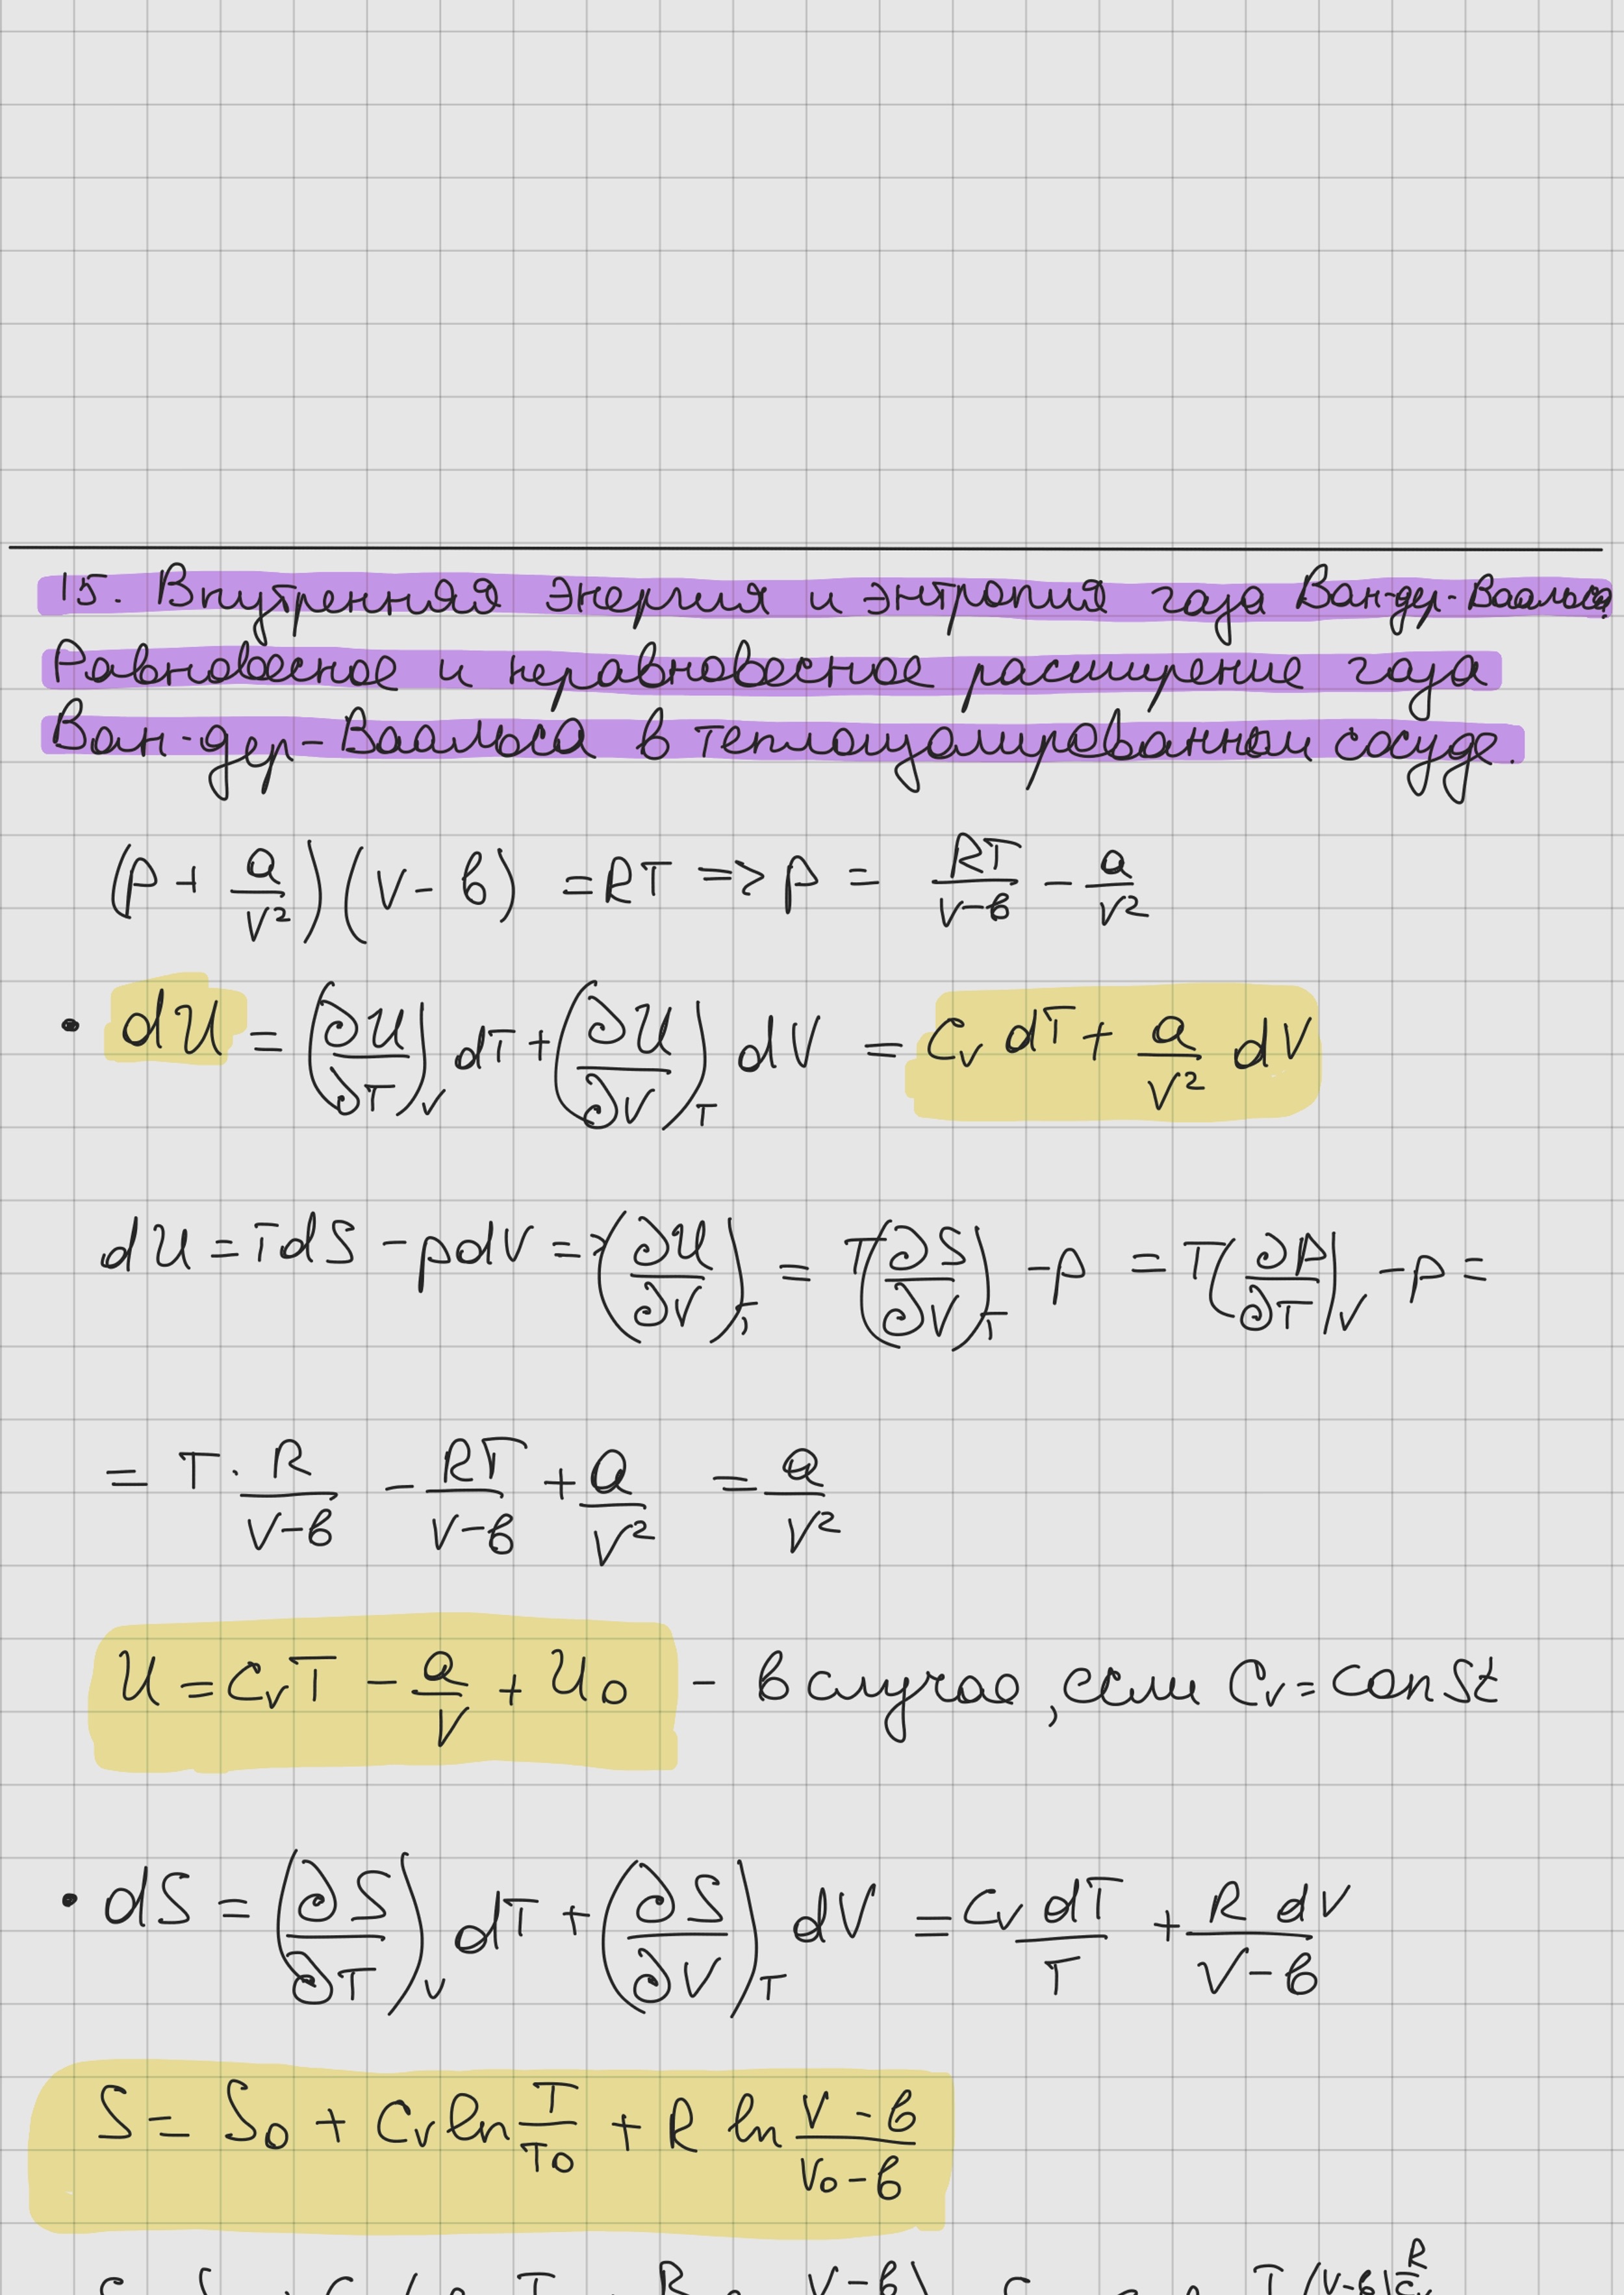 15. Внутренняя энергия и энтропия газа Ван-дер-Ваальса.
Равновесное и неравновесное расширение газа
Ван-дер-Ваальса в теплоизолированном сосуде.
(p + a/V²)(V - b) = RT => p = RT/(V-b) - a/V²
• dU = (∂U/∂T)_V dT + (∂U/∂V)_T dV = C_V dT + a/V² dV
dU = TdS - pdV => (∂U/∂V)_T = T(∂S/∂V)_T - p = T(∂p/∂T)_V - p =
= T · R/(V-b) - RT/(V-b) + a/V² = a/V²
U = C_V T - a/V + U₀ - в случае, если C_V = const
• dS = (∂S/∂T)_V dT + (∂S/∂V)_T dV = C_V dT/T + R dV/(V-b)
S = S₀ + C_V ln T/T₀ + R ln (V-b)/(V₀-b)